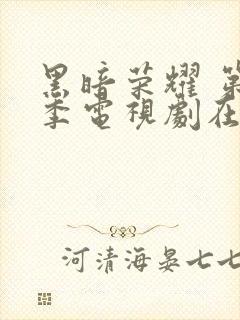 黑暗荣耀 第
季電視劇在
河清海晏七七